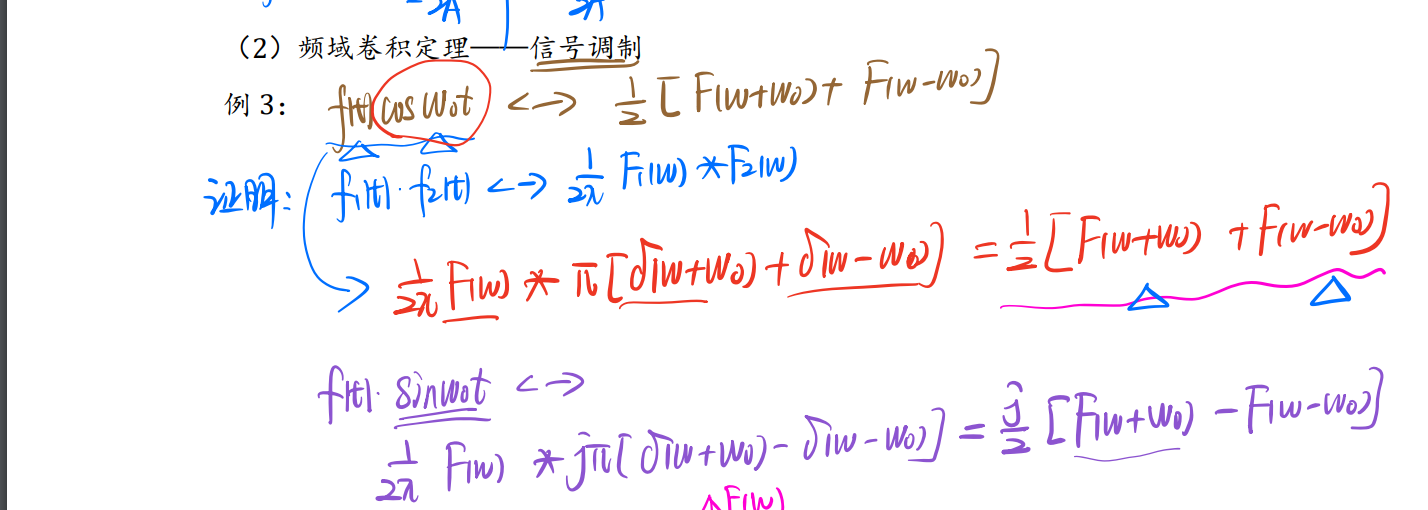 （2）频域卷积定理——信号调制
例 3： f(t)cos w₀t <—> 1/2 [F(w+w₀)+ F(w-w₀)]
证明： f₁(t)·f₂(t) <—> 1/2π F₁(w)*F₂(w)
1/2π F(w) * π[δ(w+w₀)+δ(w-w₀)] = 1/2[F(w+w₀) +F(w-w₀)]
f(t)·sinw₀t <—>
1/2π F(w) * jπ[δ(w+w₀)-δ(w-w₀)] = j/2 [F(w+w₀) -F(w-w₀)]
F(w)